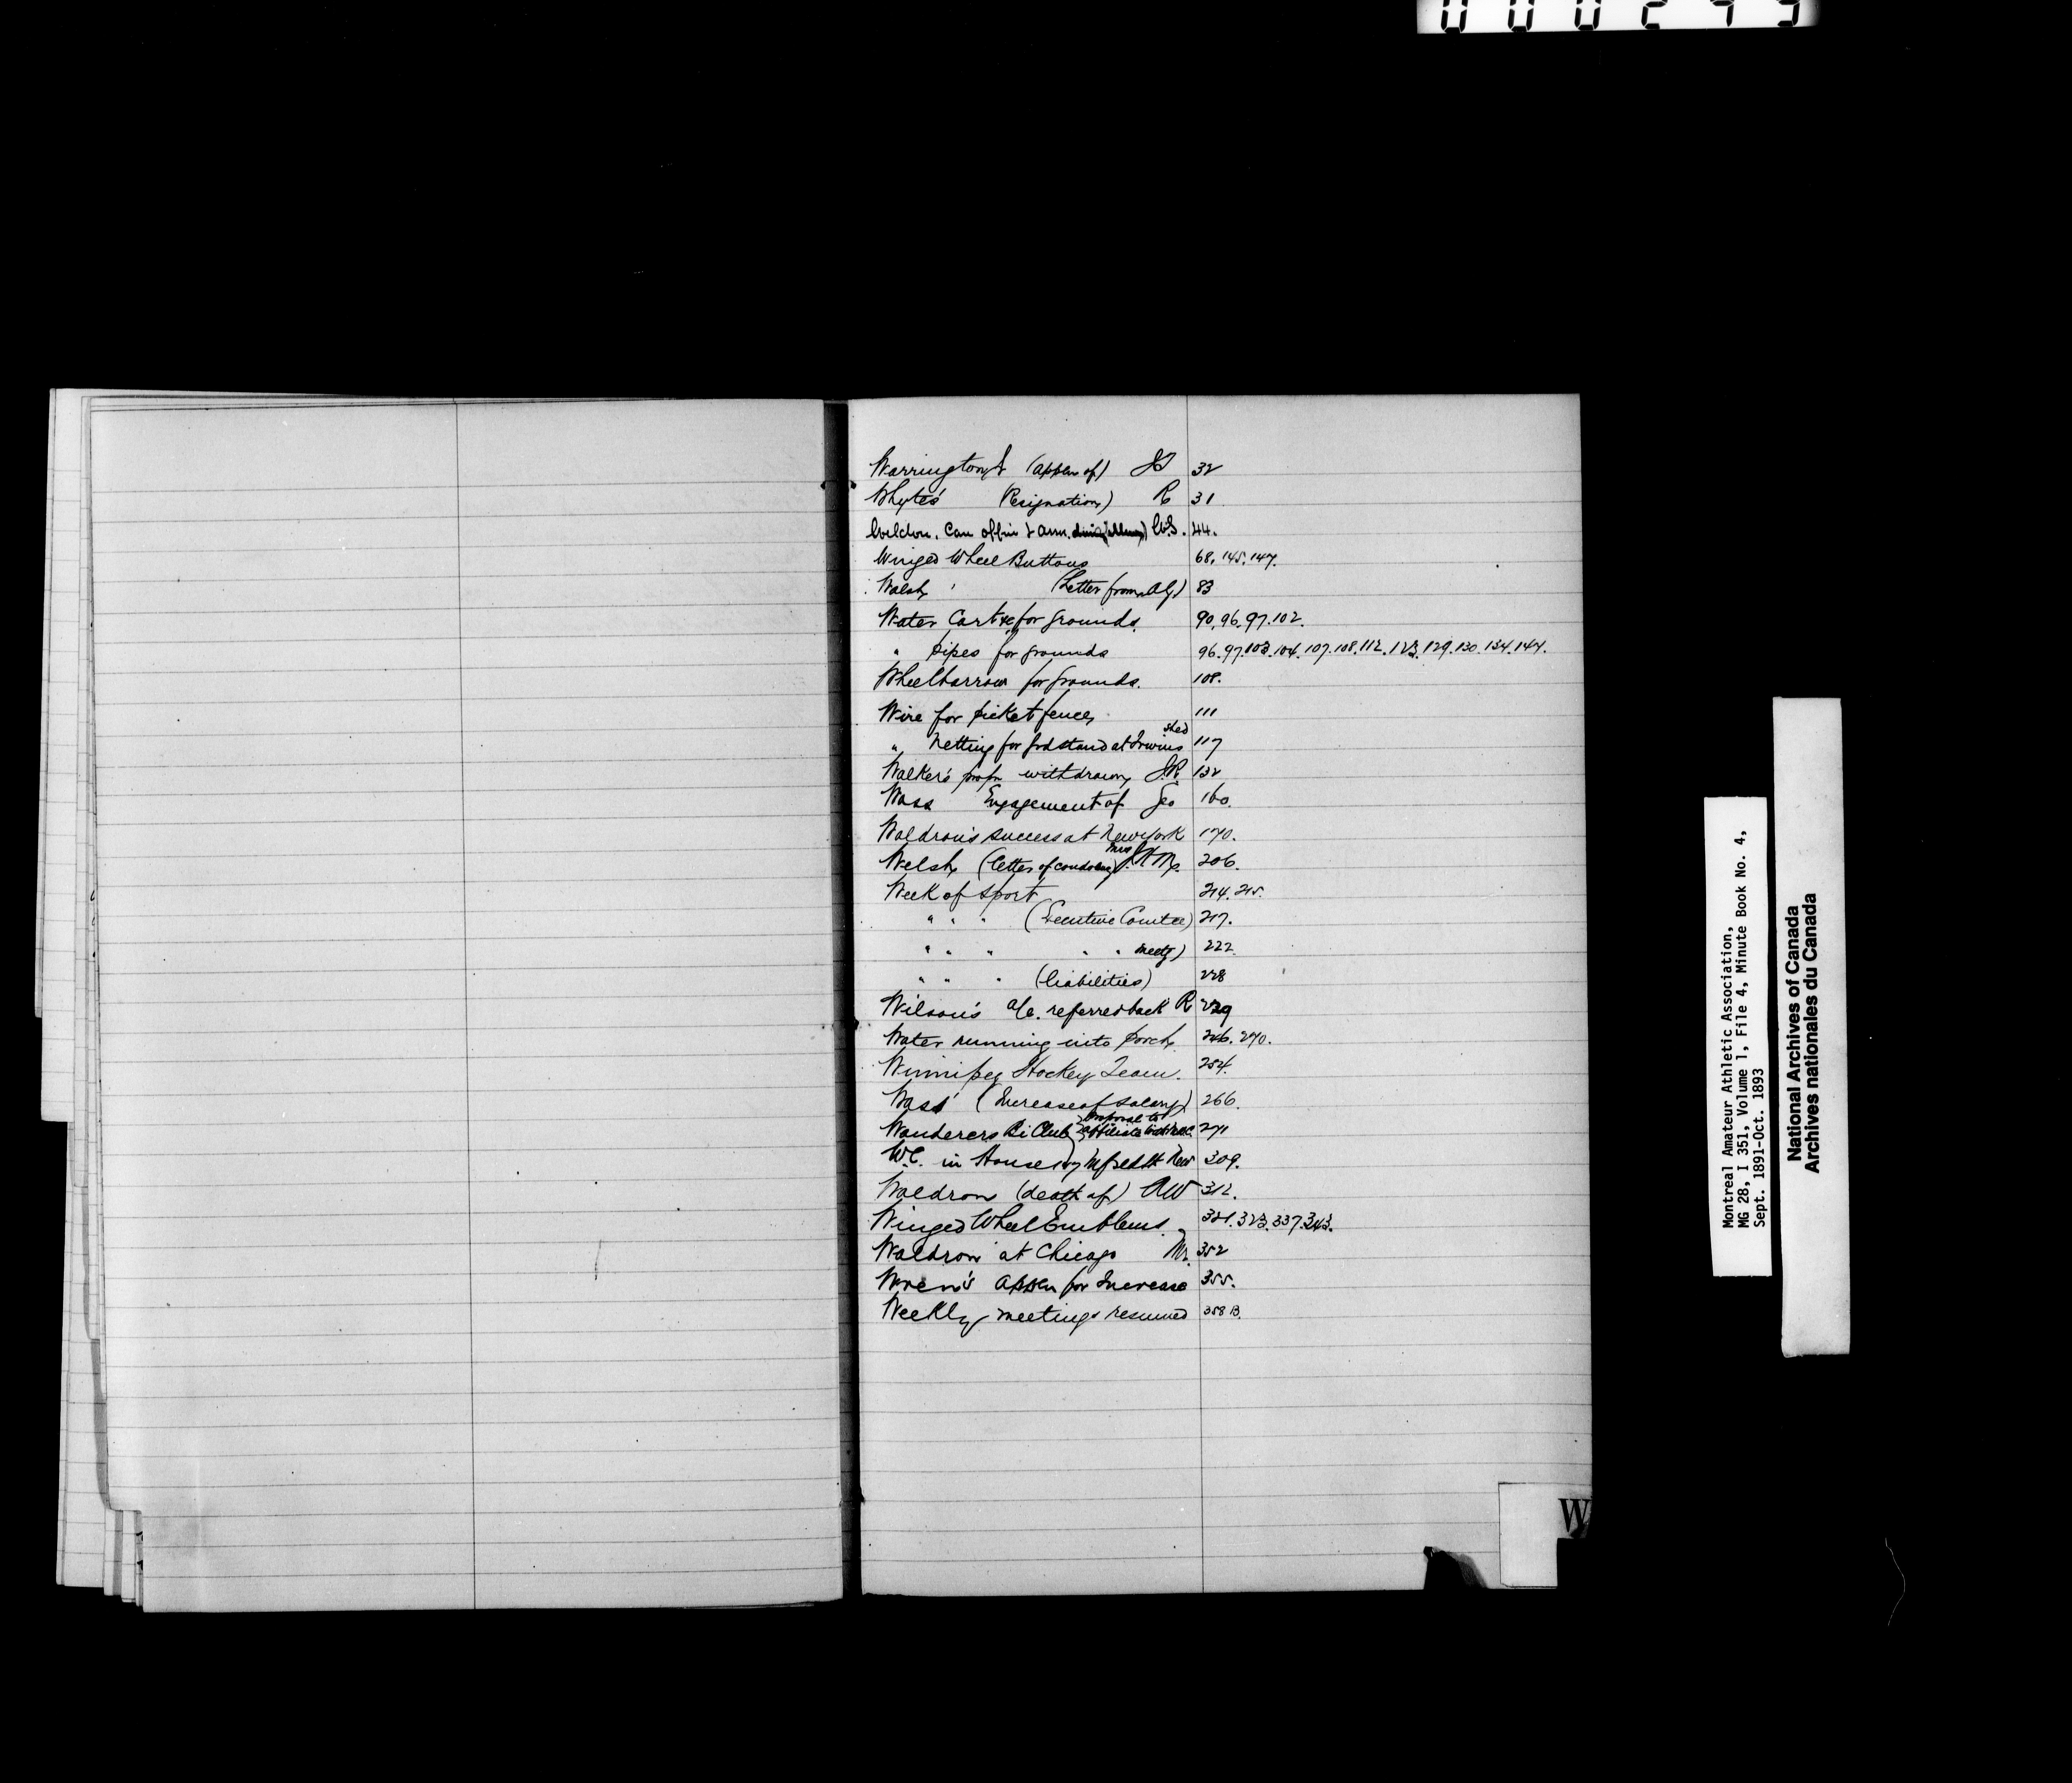 000249
Warrington (appln of) 32
Whyte's (Resignation) R 31
Weldon. W.S. 44.
Winged Wheel Buttons 68, 145, 147.
Walsh (Letter from A.G.) 83
Water Cart &c for grounds. 90, 96. 97. 102.
" pipes for grounds 96. 97. 103. 104. 107. 108. 112. 123. 129. 130. 134. 144.
Wheelbarrow for grounds. 108.
Wire for picket fence 111
shed
" Netting for grdstand at Irwins 117
Walker's propn withdrawn J.R. 132
Wass Engagement of Geo 160.
Waldron's success at New York 170.
Mrs
Welsh (letter of condolence) 206.
Week of Sport 214. 215.
" " " (Executive Comtee) 217.
" " " " " meetg) 222.
" " " (liabilities) 228
Wilson's a/c. referred back R 229
Water running into porch 226. 270.
Winnipeg Hockey Team. 254.
Wass' (Increase of Salary) 266.
proposal to
Wanderers Bi Club affiliate 271
W.C. in House 309.
Waldron (death of) AW 312.
Winged Wheel Emblems. 321. 323. 337. 343.
Waldron at Chicago Mr. 352
Wren's Appln for Increase 355.
Weekly meetings resumed 358 B.
W
Montreal Amateur Athletic Association,
MG 28, I 351, Volume 1, File 4, Minute Book No. 4,
Sept. 1891-Oct. 1893
National Archives of Canada
Archives nationales du Canada